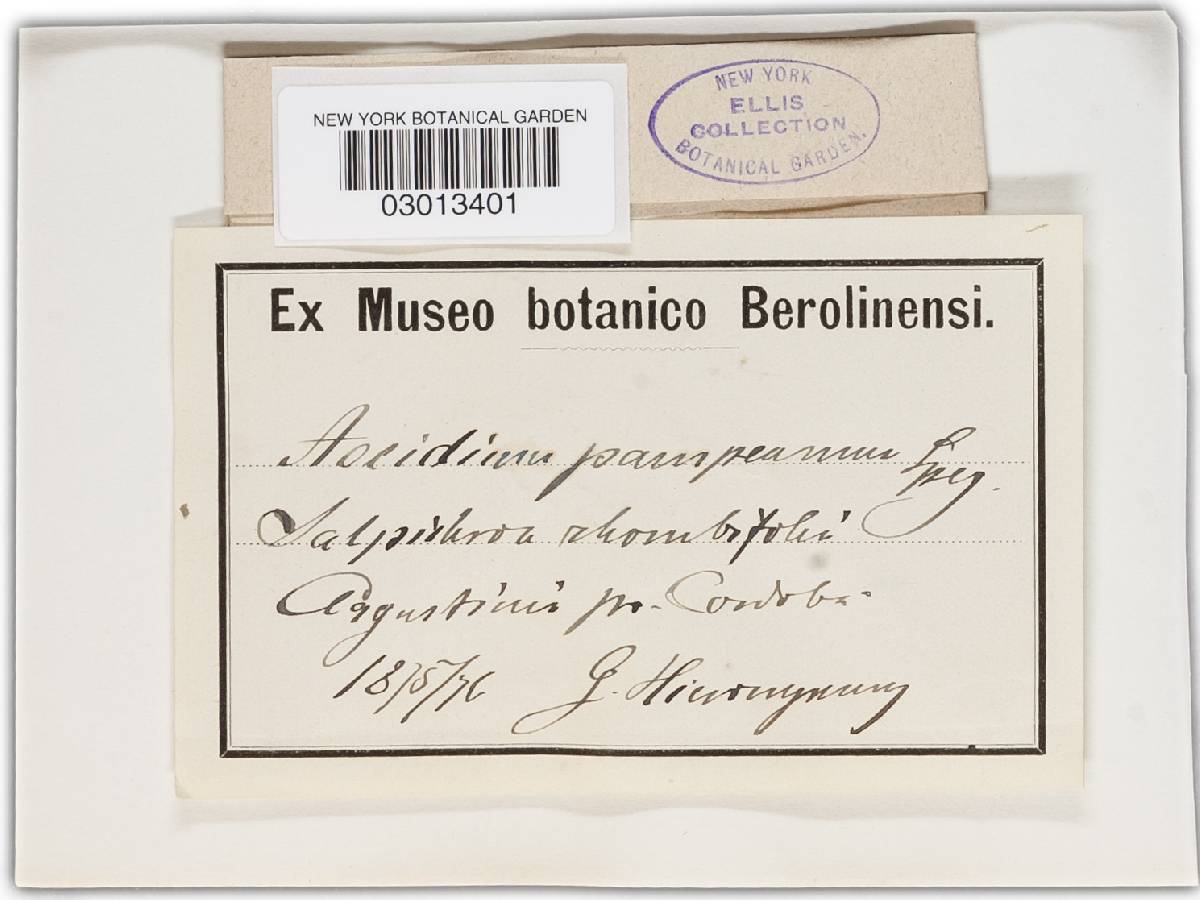 NEW YORK BOTANICAL GARDEN
03013401
NEW YORK
ELLIS
COLLECTION
BOTANICAL GARDEN.
Ex Museo botanico Berolinensi.
Aecidium pampeanum Speg.
Salpichroa rhombifolia
Argentinia pr. Cordoba
G. Hieronymus